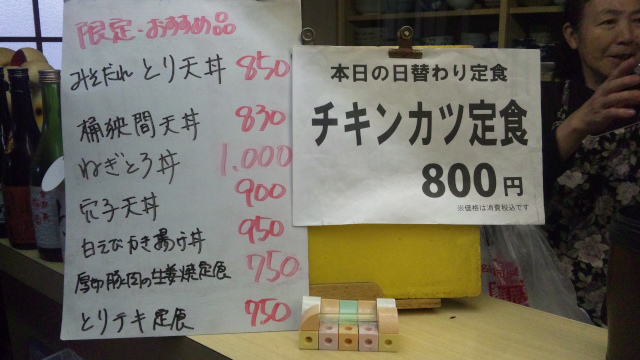 限定・おすすめ品
みそだれ とり天丼 850
桶狭間天丼 830
ねぎとろ丼 1.000
穴子天丼 900
白えびかき揚げ丼 950
厚切豚肉の生姜焼定食 750
とりテキ定食 750
本日の日替わり定食
チキンカツ定食
800円
※価格は消費税込です